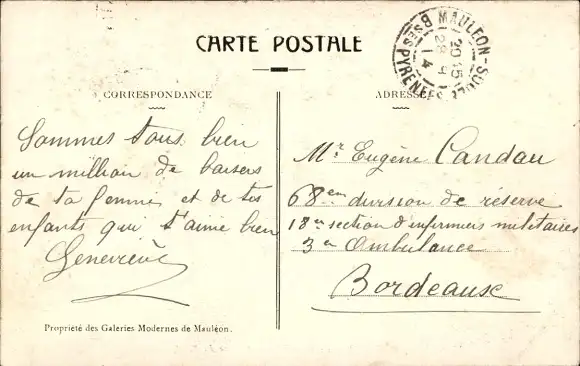 CARTE POSTALE
MAULEON-SOULE
20 15
28 9
14
BSES PYRENEES
CORRESPONDANCE
ADRESSE
Sommes tous bien
un million de baisers
de ta femme et de tes
enfants qui t'aime bien
Geneviève
Mr Eugène Candau
68em division de réserve
18em section d'infirmiers militaires
3em Ambulance
Bordeaux
Propriété des Galeries Modernes de Mauléon.